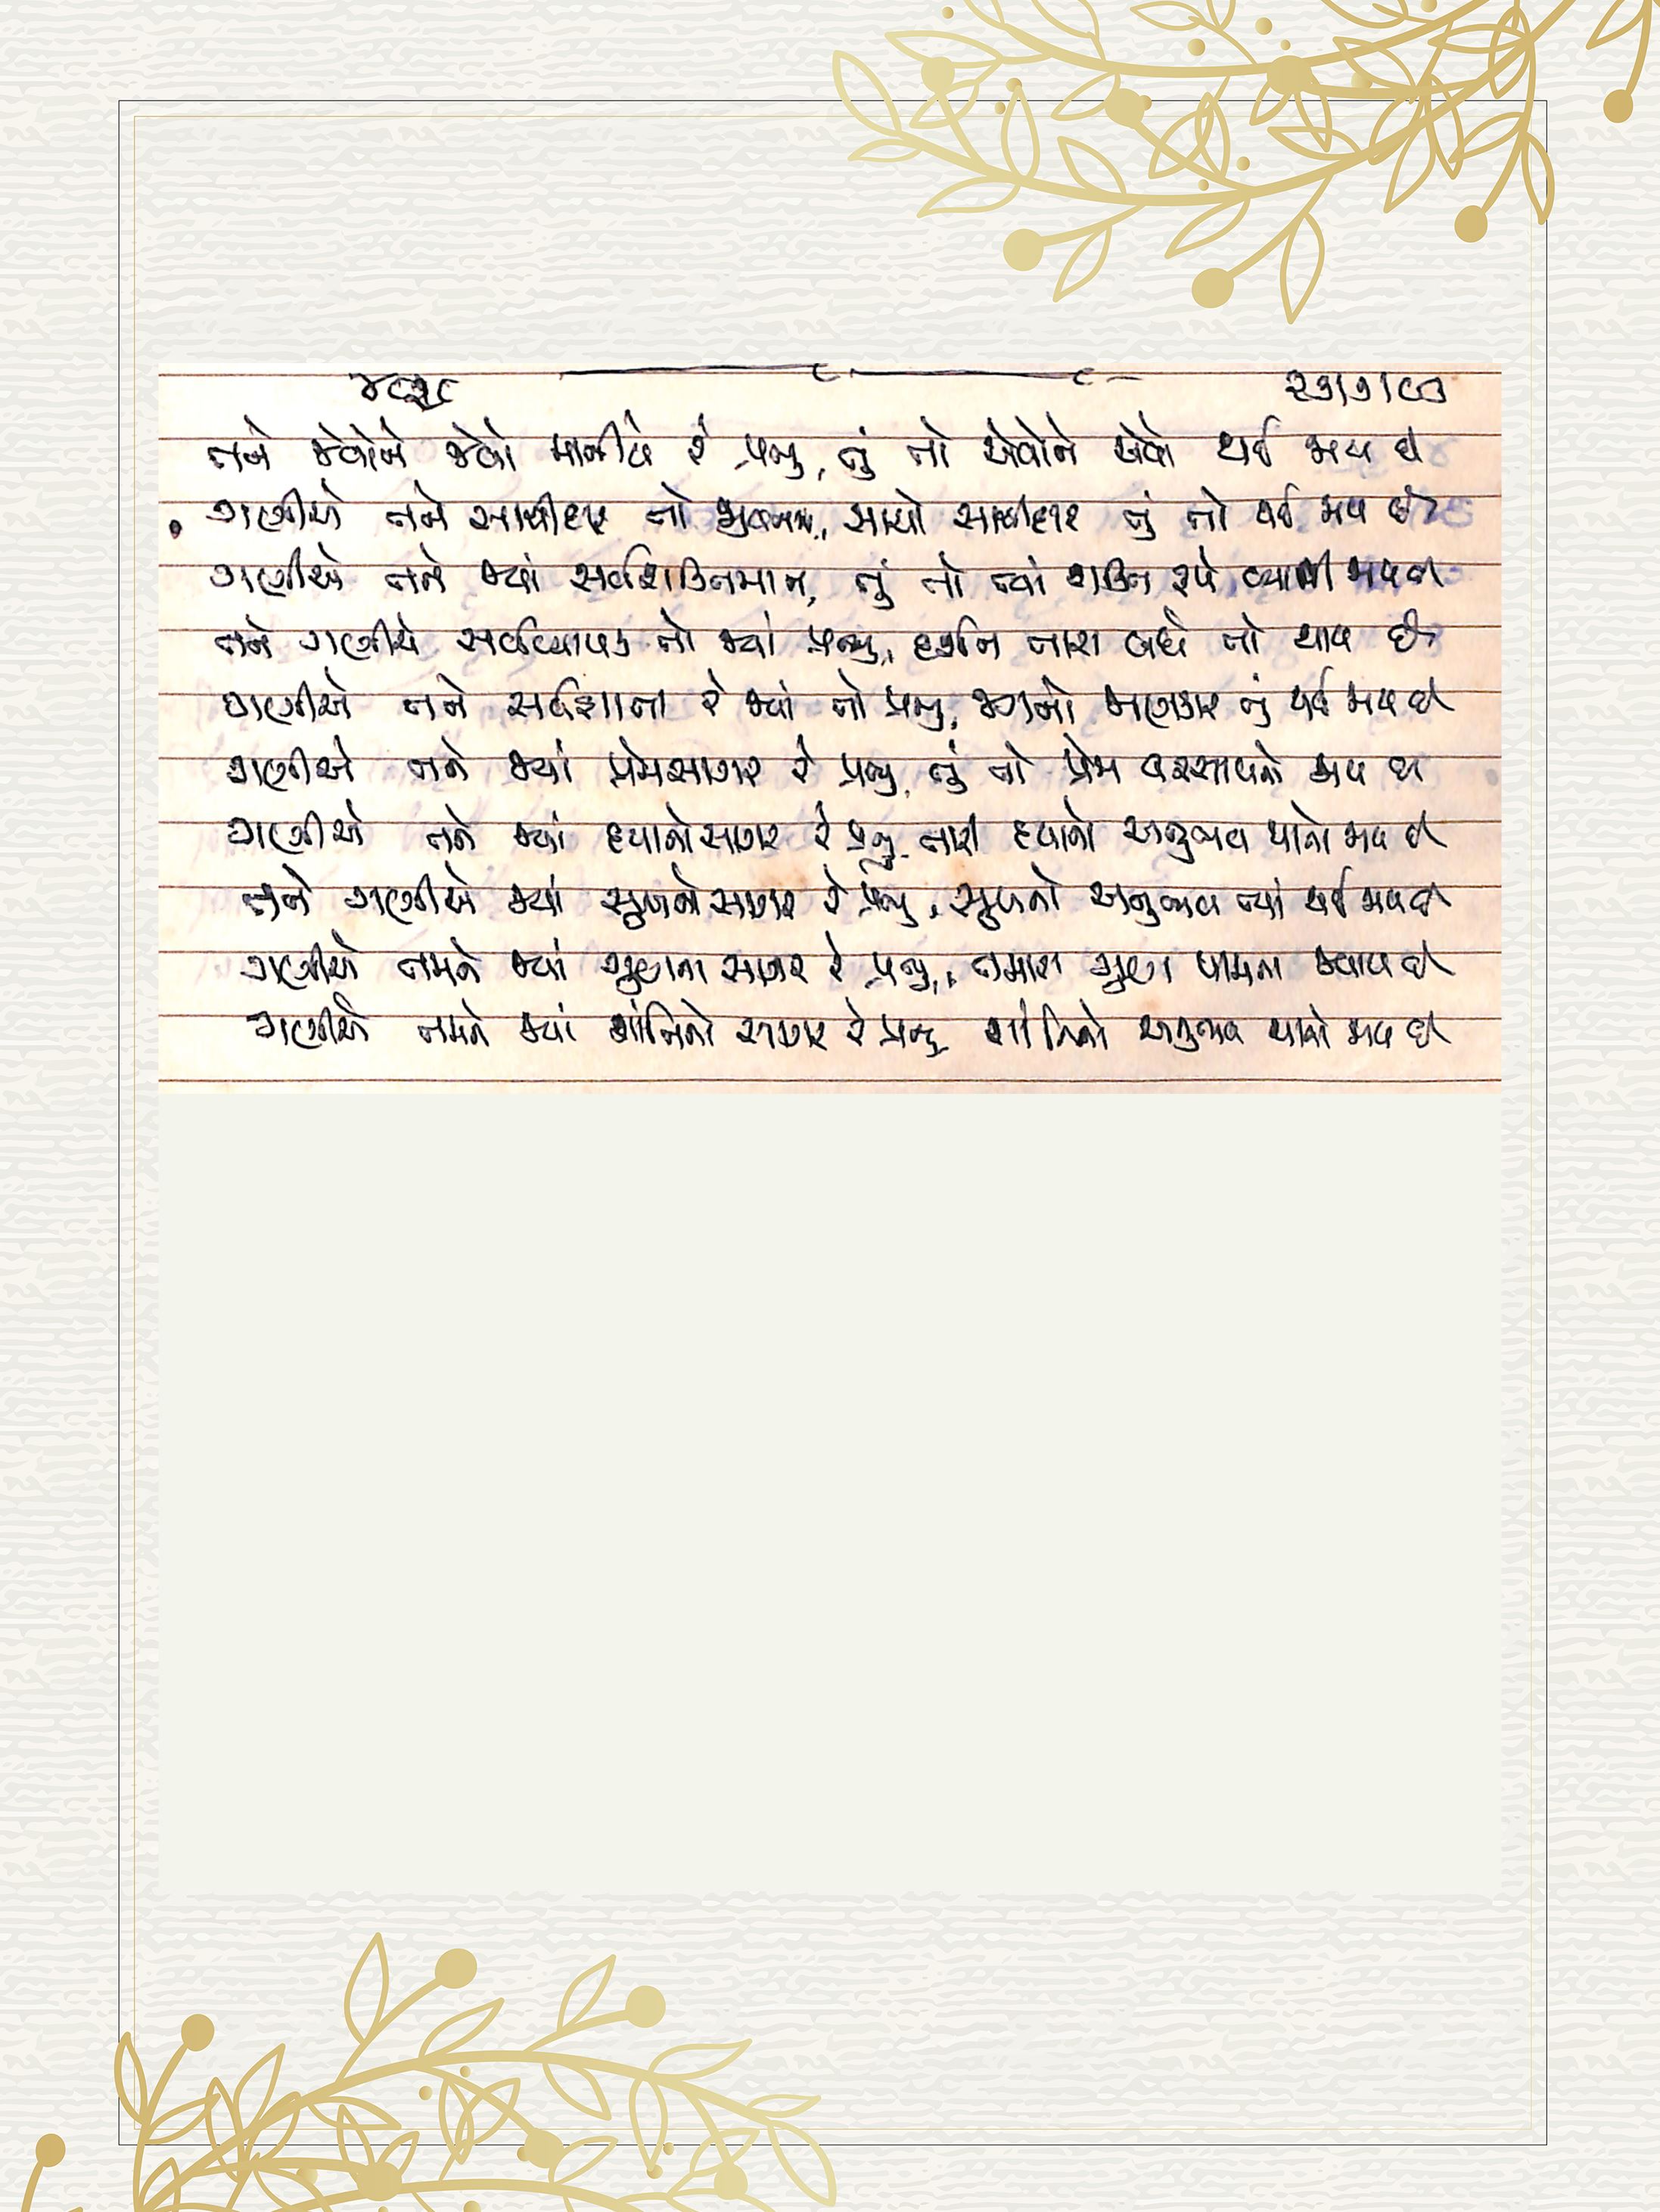 તને જેવોને જેવો માનીયે રે પ્રભુ, તું તો એવોને એવો થઈ જાય છે
ગણીએ તને સાથીદાર તો, સાચો સાથીદાર તું તો થઈ જાય છે
ગણીએ તને જ્યાં સર્વશક્તિમાન, તું તો ત્યાં શક્તિ રૂપે વ્યાપી જાય છે
તને ગણીયે સર્વવ્યાપક તો જ્યાં પ્રભુ, દર્શન તારા બધે તો થાય છે
ગણીએ તને સર્વજ્ઞાતા રે જ્યાં તો પ્રભુ, જગનો જાણકાર તું થઈ જાય છે
ગણીએ તને જ્યાં પ્રેમસાગર રે પ્રભુ, તું તો પ્રેમ વરસાવતો જાય છે
ગણીએ તને જ્યાં દયાનો સાગર રે પ્રભુ તારી દયાનો અનુભવ થાતો જાય છે
તને ગણીએ જ્યાં સુખનો સાગર રે પ્રભુ, સુખનો અનુભવ ત્યાં થઈ જાય છે
ગણીએ તમને જ્યાં ગુણોના સાગર રે પ્રભુ, તમારા ગુણ પામતા જવાય છે
ગણીએ તમને જ્યાં શાંતિનો સાગર રે પ્રભુ શાંતિનો અનુભવ થાતો જાય છે